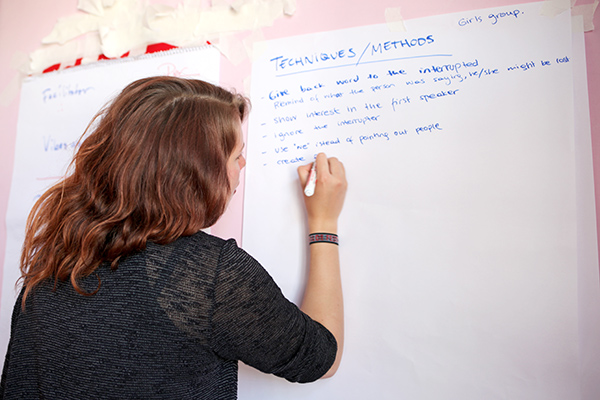 Girls group.
TECHNIQUES / METHODS
- Give back word to the interrupted
Remind of what the person was saying, he/she might be lost
- show interest in the first speaker
- ignore the interrupter
- use "me" instead of pointing out people
- create
Facilitator